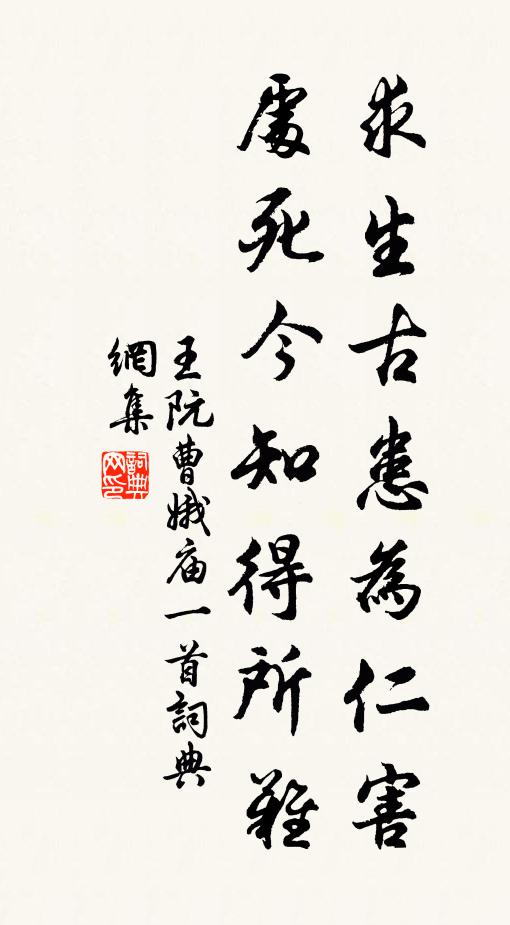 求生古患為仁害
處死今知得所難
王阮曹娥庙一首詞典
網集
詞典網印